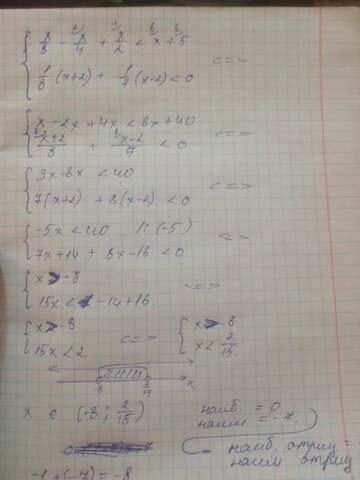 { x/8 - x/4 + x/2 < x + 5
{ 1/8 (x+2) + 1/7 (x-2) < 0 <=>
{ x - 2x + 4x < 8x + 40
{ x+2/8 + x-2/7 < 0 <=>
{ 3x - 8x < 40
{ 7(x+2) + 8(x-2) < 0 <=>
{ -5x < 40 |: (-5)
{ 7x + 14 + 8x - 16 < 0 <=>
{ x > -8
{ 15x < -14 + 16 <=>
{ x > -8
{ 15x < 2 <=> { x > -8
{ x < 2/15.
-8 2/15 x
x ∈ (-8; 2/15)
наиб. = 0
наим = -7.
наиб. отриц =
наим отриц
-1 + (-7) = -8